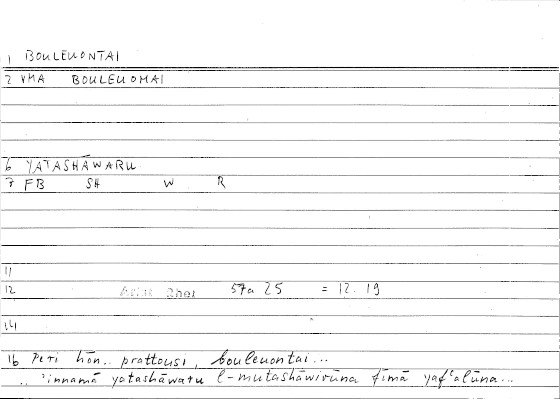 1 BOULEUONTAI
2 VMA BOULEUOMAI
6 YATASHĀWARU
7 FB SH W R
11
12 Arist Rhet 57a 25 = 12. 19
14
16 Peri hōn.. prattousi, bouleuontai...
.. 'innamā yatashāwaru l-mutashāwirūna fīmā yaf'alūna...